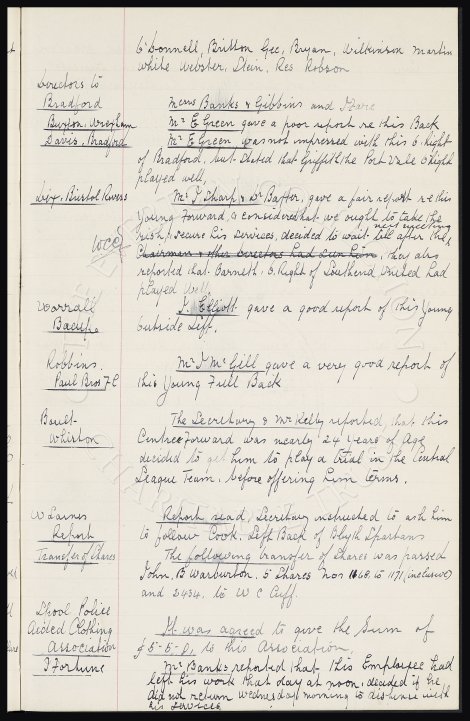 O'Donnell, Britton Gee, Bryan, Wilkinson Martin
White Webster, Stein, Res Robson
Directors to
Bradford
Messrs Banks & Gibbins and
Buxton. Wrexham
Mr E Green gave a poor report re this Back
Davis. Bradford
Mr E Green was not impressed with this O. Right
of Bradford, but stated that Griffiths the Port Vale O Right
played well.
Bristol Rovers
Mr J. Sharp & Dr Baxter, gave a fair report re this
Young Forward, & considered that we ought to take the
risk & secure his services, decided to wait till after the next meeting
Chairman & other Directors had seen him, they also
reported that Barnett. O. Right of Southend United had
played well.
Worrall
Bacup
J. Elliott gave a good report of this Young
Outside Left.
Robbins.
Paul Bros F C
Mr J McGill gave a very good report of
this Young Full Back
Boult-
Whiston
The Secretary & Mr Kelly reported, that this
Centre Forward was nearly 24 years of Age
decided to get him to play a trial in the Central
League Team, before offering him terms.
W Sames
Report
Report read, Secretary instructed to ask him
to follow Cook, Left Back of Blyth Spartans
Transfer of Shares
The following transfer of Shares was passed
John, B Warburton, 5 Shares Nos 1168 to 1171 (inclusive)
and 2434. to W C Cuff.
L'pool Police
Aided Clothing
Association
It was agreed to give the Sum of
£5-5-0, to this Association.
J Fortune
Mr Banks reported that this Employee had
left his work that day at noon, decided if he
did not return Wednesday morning to dispense with
his services